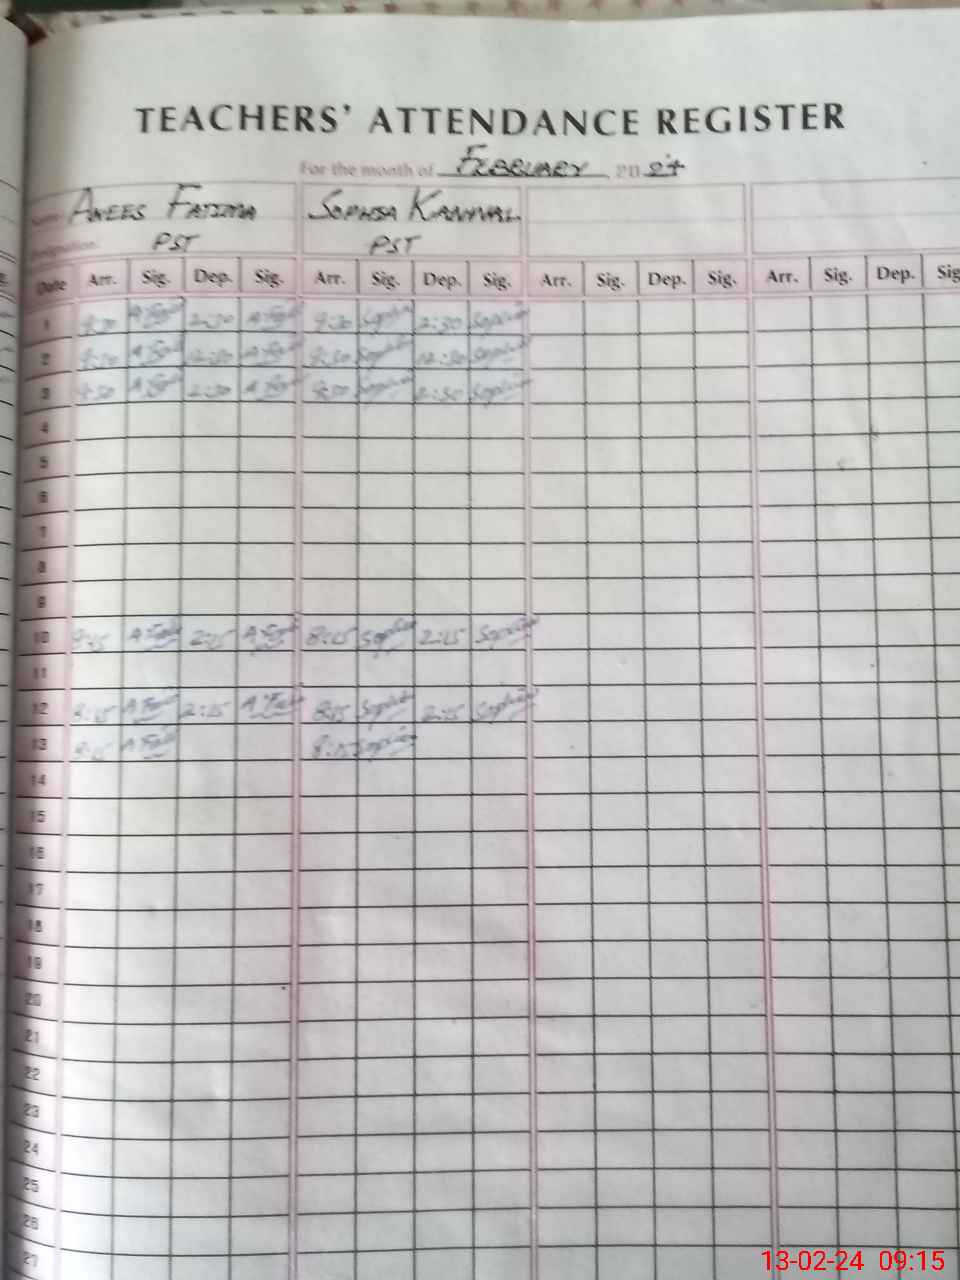 TEACHERS' ATTENDANCE REGISTER
For the month of FEBRUARY, 2024
Name ANEES FATIMA SOPHIA KANWAL
Designation. PST PST
Date Arr. Sig. Dep. Sig. Arr. Sig. Dep. Sig. Arr. Sig. Dep. Sig. Arr. Sig. Dep. Sig
1 9:30 2:30 9:30 Sophia 2:30 Sophia
2 9:30 12:30 9:30 Sophia 12:30 Sophia
3 9:30 2:30 9:30 Sophia 2:30 Sophia
4
5
6
7
8
9
10 8:15 2:15 8:15 Sophia 2:15 Sophia
11
12 8:15 2:15 8:15 Sophia 2:15 Sophia
13 8:15 8:15 Sophia
14
15
16
17
18
19
20
21
22
23
24
25
26
27
13-02-24 09:15